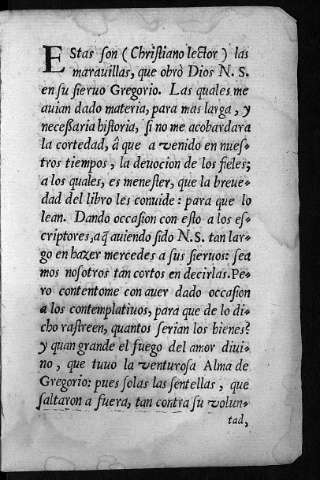 EStas son (Christiano lector) las
marauillas, que obrò Dios N. S.
en su sieruo Gregorio. Las quales me
auian dado materia, para mas larga, y
necessaria historia, si no me acobardara
la cortedad, â que a venido en nues-
tros tiempos, la deuocion de los fieles;
a los quales, es menester, que la breue-
dad del libro les conuide: para que lo
lean. Dando occasion con esto a los es-
criptores, a q̃ auiendo sido N.S. tan lar-
go en hazer mercedes a sus sieruos: sea
mos nosotros tan cortos en decirlas. Pe-
ro contentome con auer dado occasion
a los contemplatiuos, para que de lo di-
cho rastreen, quantos serian los bienes?
y quan grande el fuego del amor diui-
no, que tuuo la venturosa Alma de
Gregorio: pues solas las sentellas, que
saltaron a fuera, tan contra su volun-
tad,